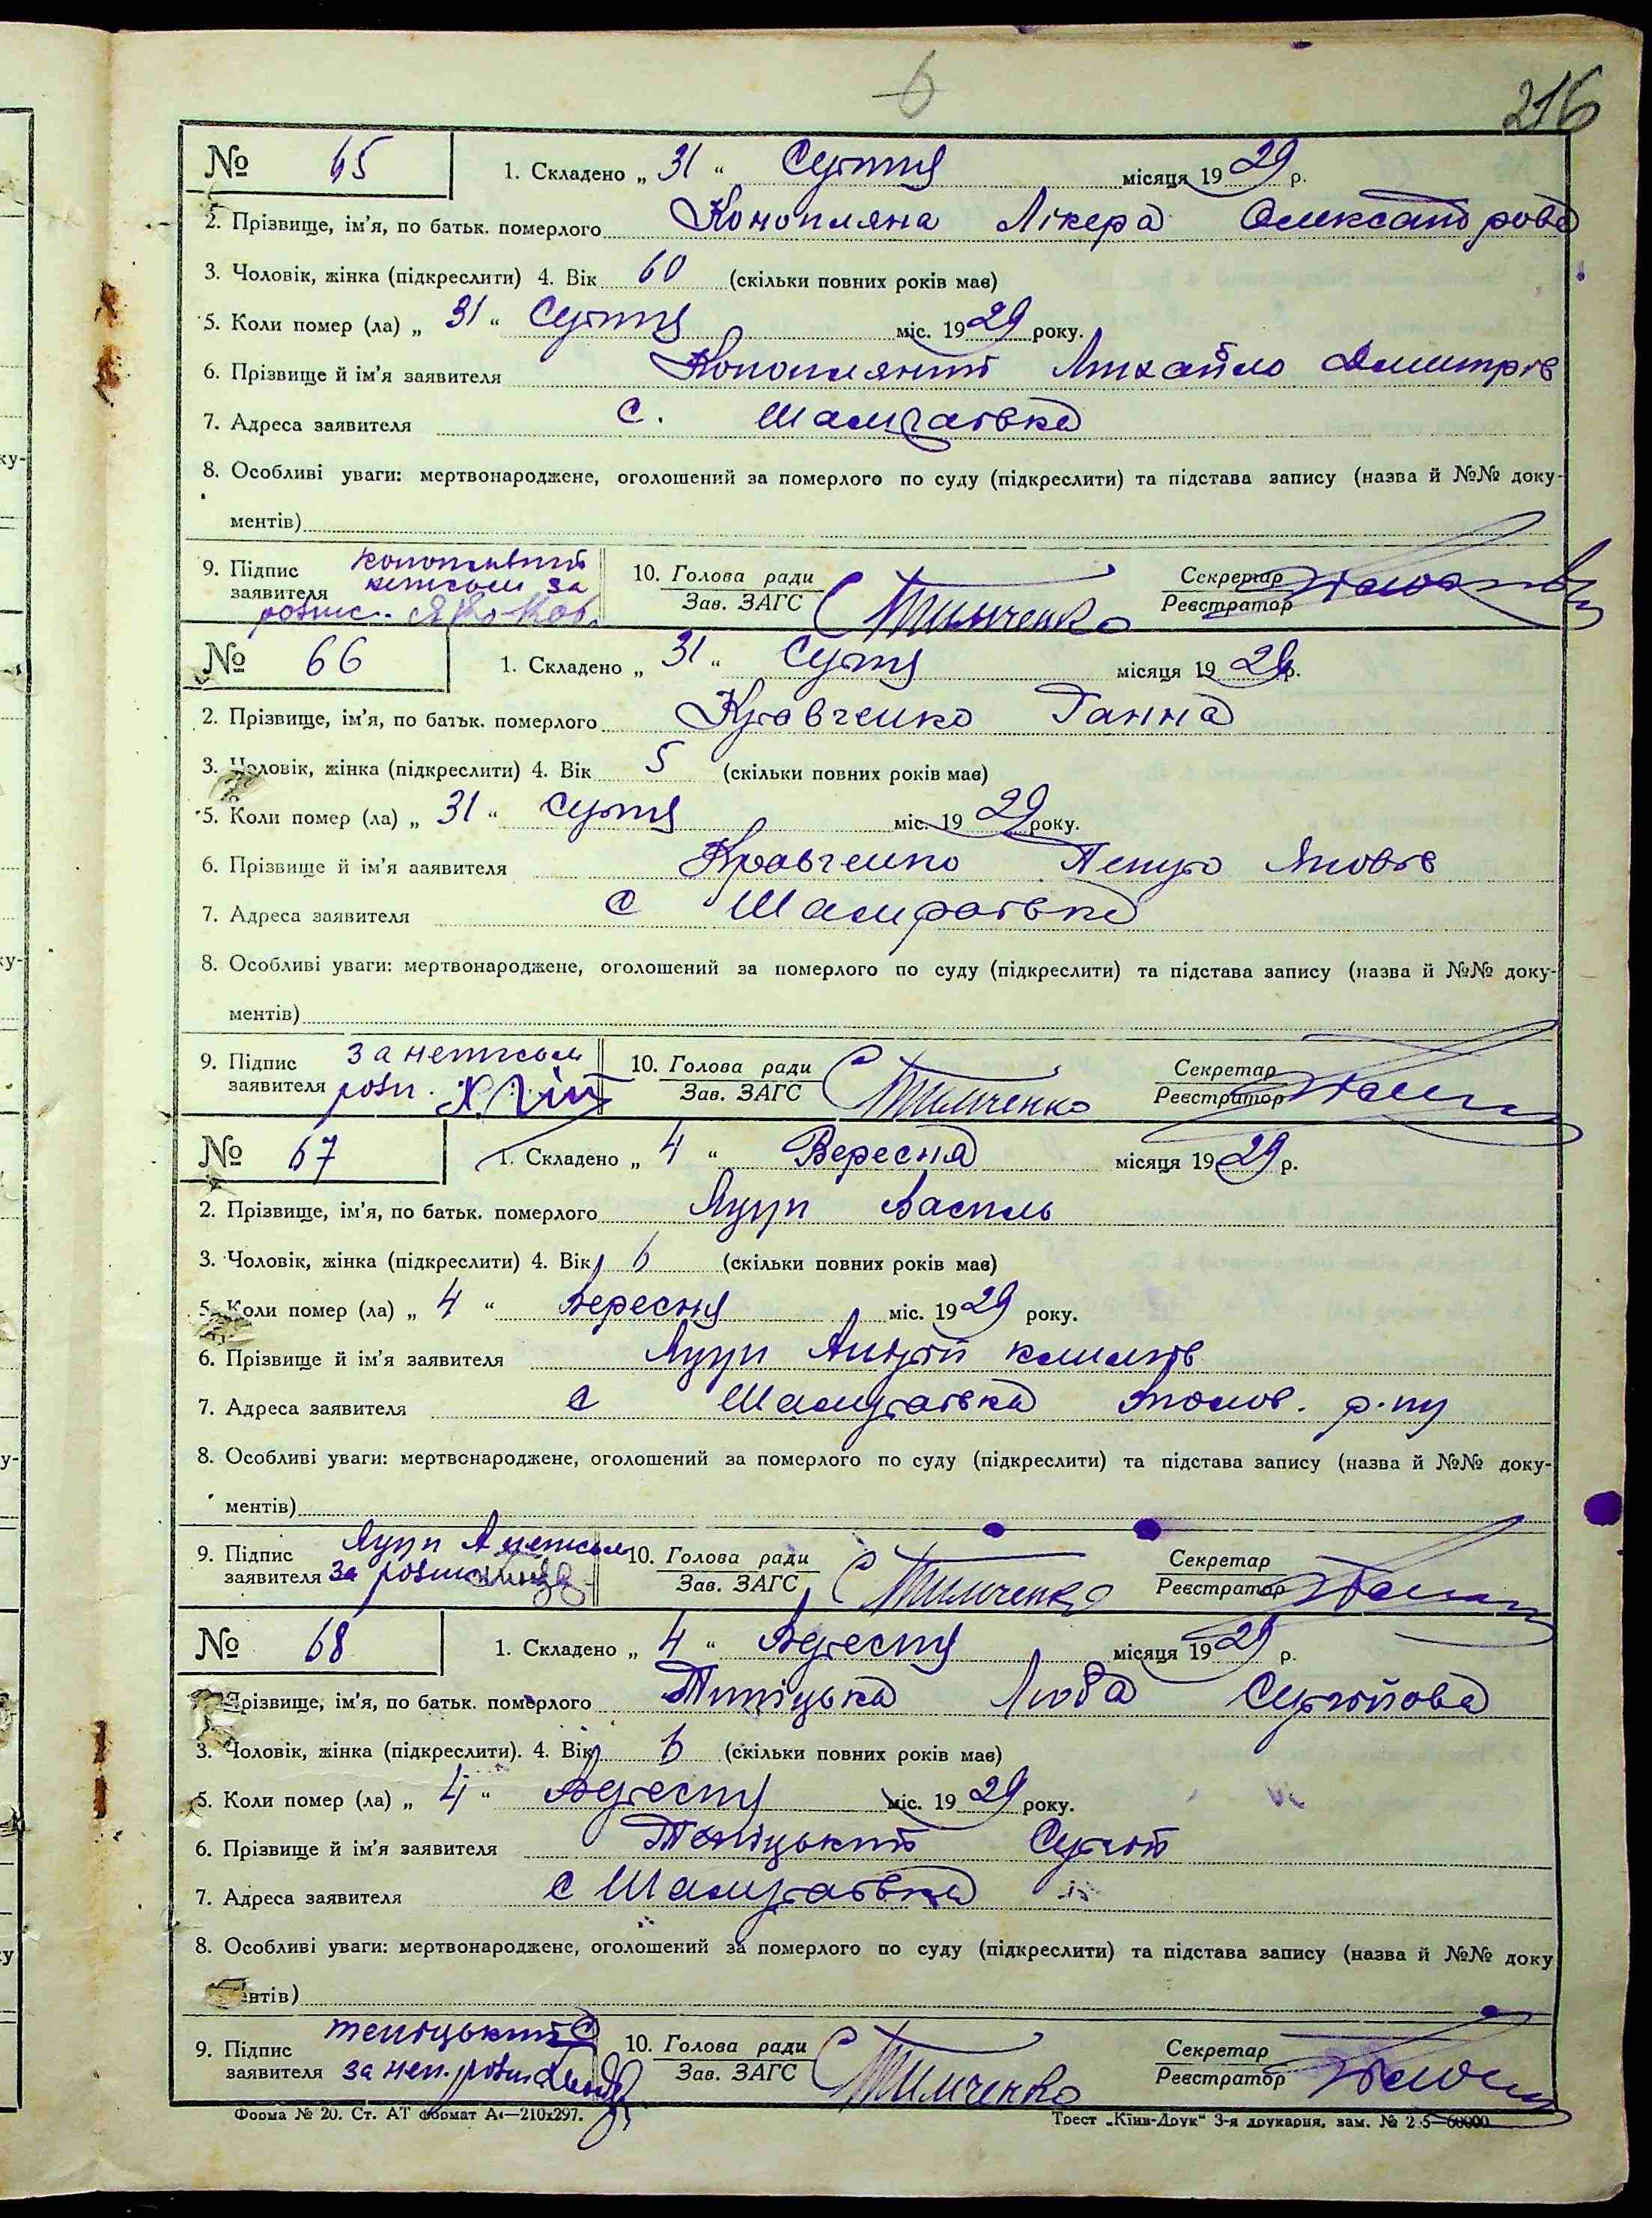 6
216
№ 65 1. Складено „ 31 “ Серпня місяця 19 29 р.
2. Прізвище, ім'я, по батьк. померлого Конопляна Лікера Олександрова
3. Чоловік, жінка (підкреслити) 4. Вік 60 (скільки повних років має)
5. Коли помер (ла) „ 31 “ Серпня міс. 19 29 року.
6. Прізвище й ім'я заявителя Конопляний Михайло Дмитрів
7. Адреса заявителя с. Шамраївка
8. Особливі уваги: мертвонароджене, оголошений за померлого по суду (підкреслити) та підстава запису (назва й №№ доку-
ментів)
9. Підпис заявителя 10. Голова ради Зав. ЗАГС С Тимченко Секретар Реєстратор
№ 66 1. Складено „ 31 “ Серпня місяця 19 29 р.
2. Прізвище, ім'я, по батьк. померлого Кравченко Ганна
3. Чоловік, жінка (підкреслити) 4. Вік 5 (скільки повних років має)
5. Коли помер (ла) „ 31 “ Серпня міс. 19 29 року.
6. Прізвище й ім'я заявителя Кравченко Петро Яковів
7. Адреса заявителя с Шамраївка
8. Особливі уваги: мертвонароджене, оголошений за померлого по суду (підкреслити) та підстава запису (назва й №№ доку-
ментів)
9. Підпис заявителя за неписьм розп. 10. Голова ради Зав. ЗАГС С Тимченко Секретар Реєстратор
№ 67 1. Складено „ 4 “ Вересня місяця 19 29 р.
2. Прізвище, ім'я, по батьк. померлого Василь
3. Чоловік, жінка (підкреслити) 4. Вік 6 (скільки повних років має)
5. Коли помер (ла) „ 4 “ Вересня міс. 19 29 року.
6. Прізвище й ім'я заявителя Андрій Климів
7. Адреса заявителя с Шамраївка р-ну
8. Особливі уваги: мертвонароджене, оголошений за померлого по суду (підкреслити) та підстава запису (назва й №№ доку-
ментів)
9. Підпис заявителя 10. Голова ради Зав. ЗАГС С Тимченко Секретар Реєстратор
№ 68 1. Складено „ 4 “ Вересня місяця 19 29 р.
Прізвище, ім'я, по батьк. померлого Люба Сергійова
3. Чоловік, жінка (підкреслити). 4. Вік 6 (скільки повних років має)
5. Коли помер (ла) „ 4 “ Вересня міс. 19 29 року.
6. Прізвище й ім'я заявителя Теніцький Сергій
7. Адреса заявителя с Шамраївка
8. Особливі уваги: мертвонароджене, оголошений за померлого по суду (підкреслити) та підстава запису (назва й №№ доку
ентів)
9. Підпис заявителя Теніцький С за неп. 10. Голова ради Зав. ЗАГС С Тимченко Секретар Реєстратор
Форма № 20. Ст. АТ формат А₄—210х297. Трест „Київ-Друк“ 3-я друкарня, зам. № 2 5—60000